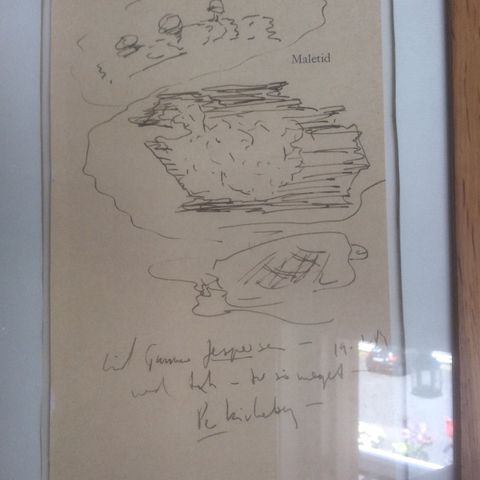 Maletid
til Gunnar Jespersen —
med tak — for så meget —
Per Kirkeby —